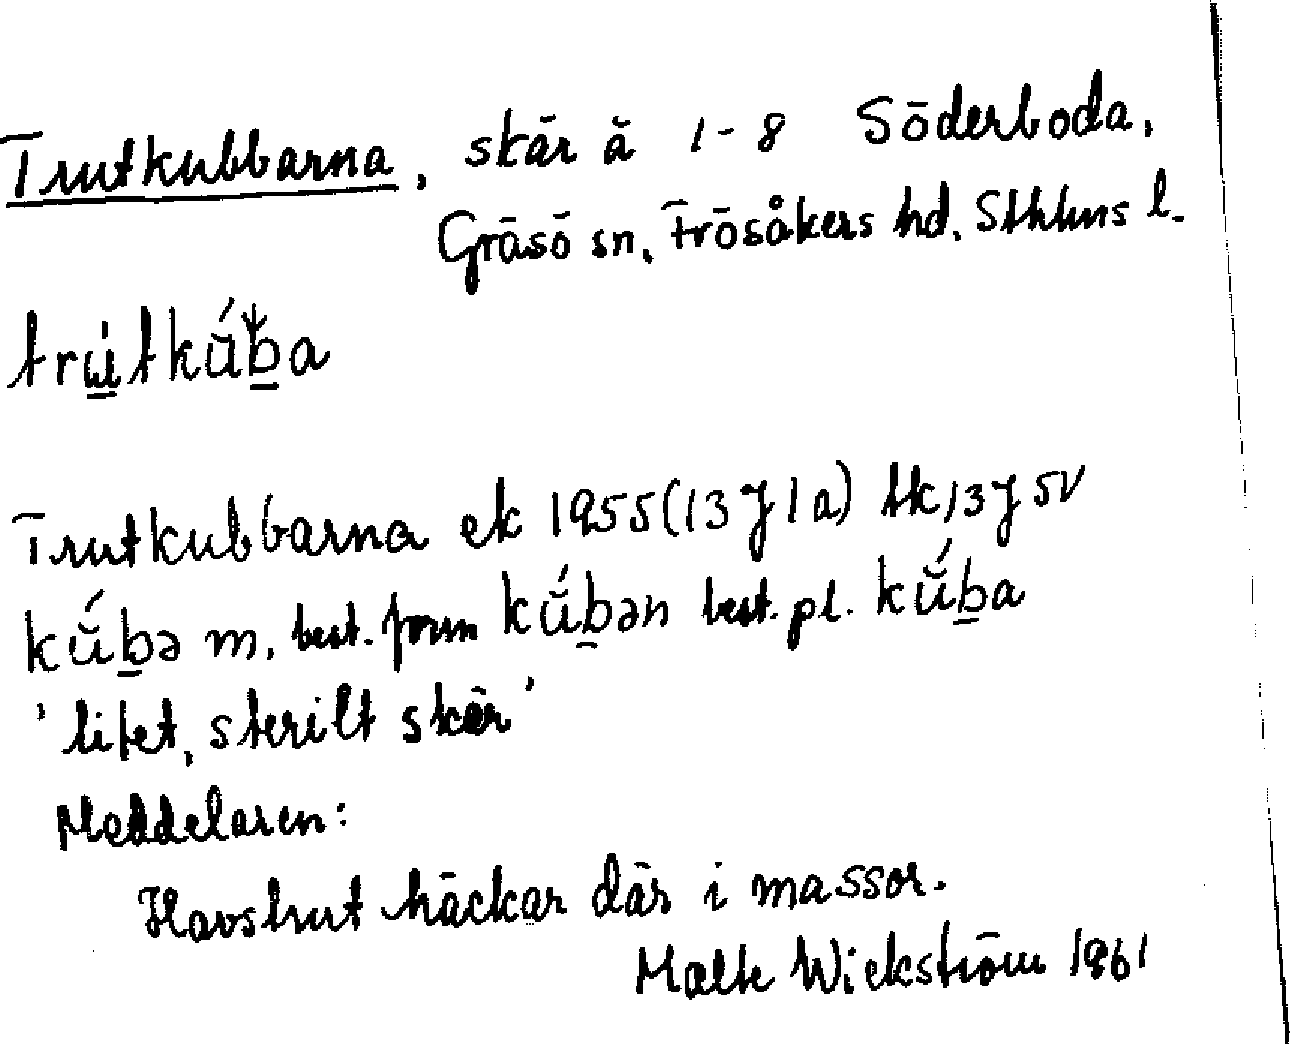 Trutkubbarna, skär å 1-8 Söderboda,
Gräsö sn, Frösåkers hd, Sthlms l.
Trutkubbarna ek 1955 (13 J 1 a) tk 13 J SV
m, best. form best. pl.
'litet, sterilt skär'
Meddelaren:
Havstrut häckar där i massor.
Malte Wickström 1961